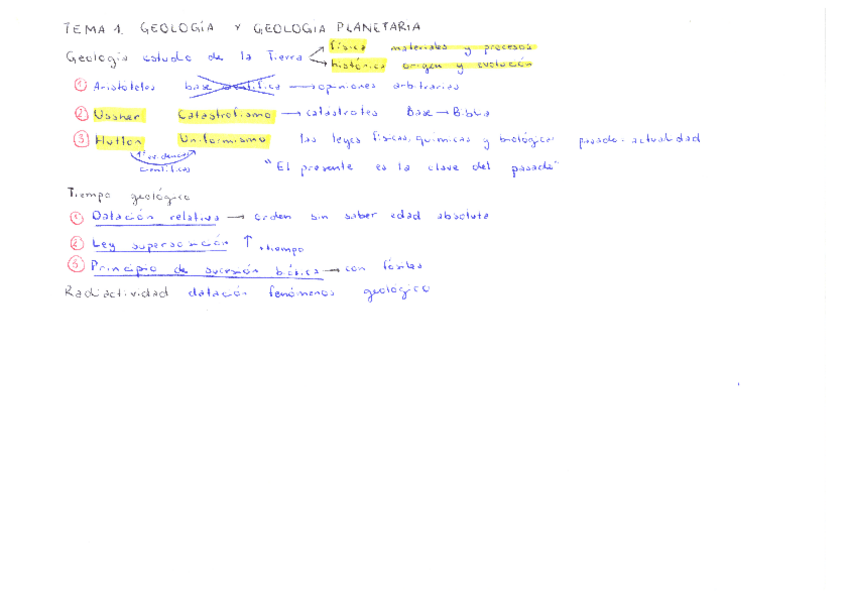 TEMA 1. GEOLOGÍA Y GEOLOGIA PLANETARIA
Geología estudio de la Tierra → física materiales y procesos
→ histórica origen y evolución
① Aristóteles base científica → opiniones arbitrarias
② Ussher Catastrofismo → catástrofes Base → Biblia
③ Hutton Uniformismo las leyes físicas, químicas y biológica pasado - actualidad
científicas "El presente es la clave del pasado"
Tiempo geológico
① Datación relativa → orden sin saber edad absoluta
② Ley superposición ↑ + tiempo
③ Principio de sucesión biótica → con fósiles
Radiactividad datación fenómenos geológico